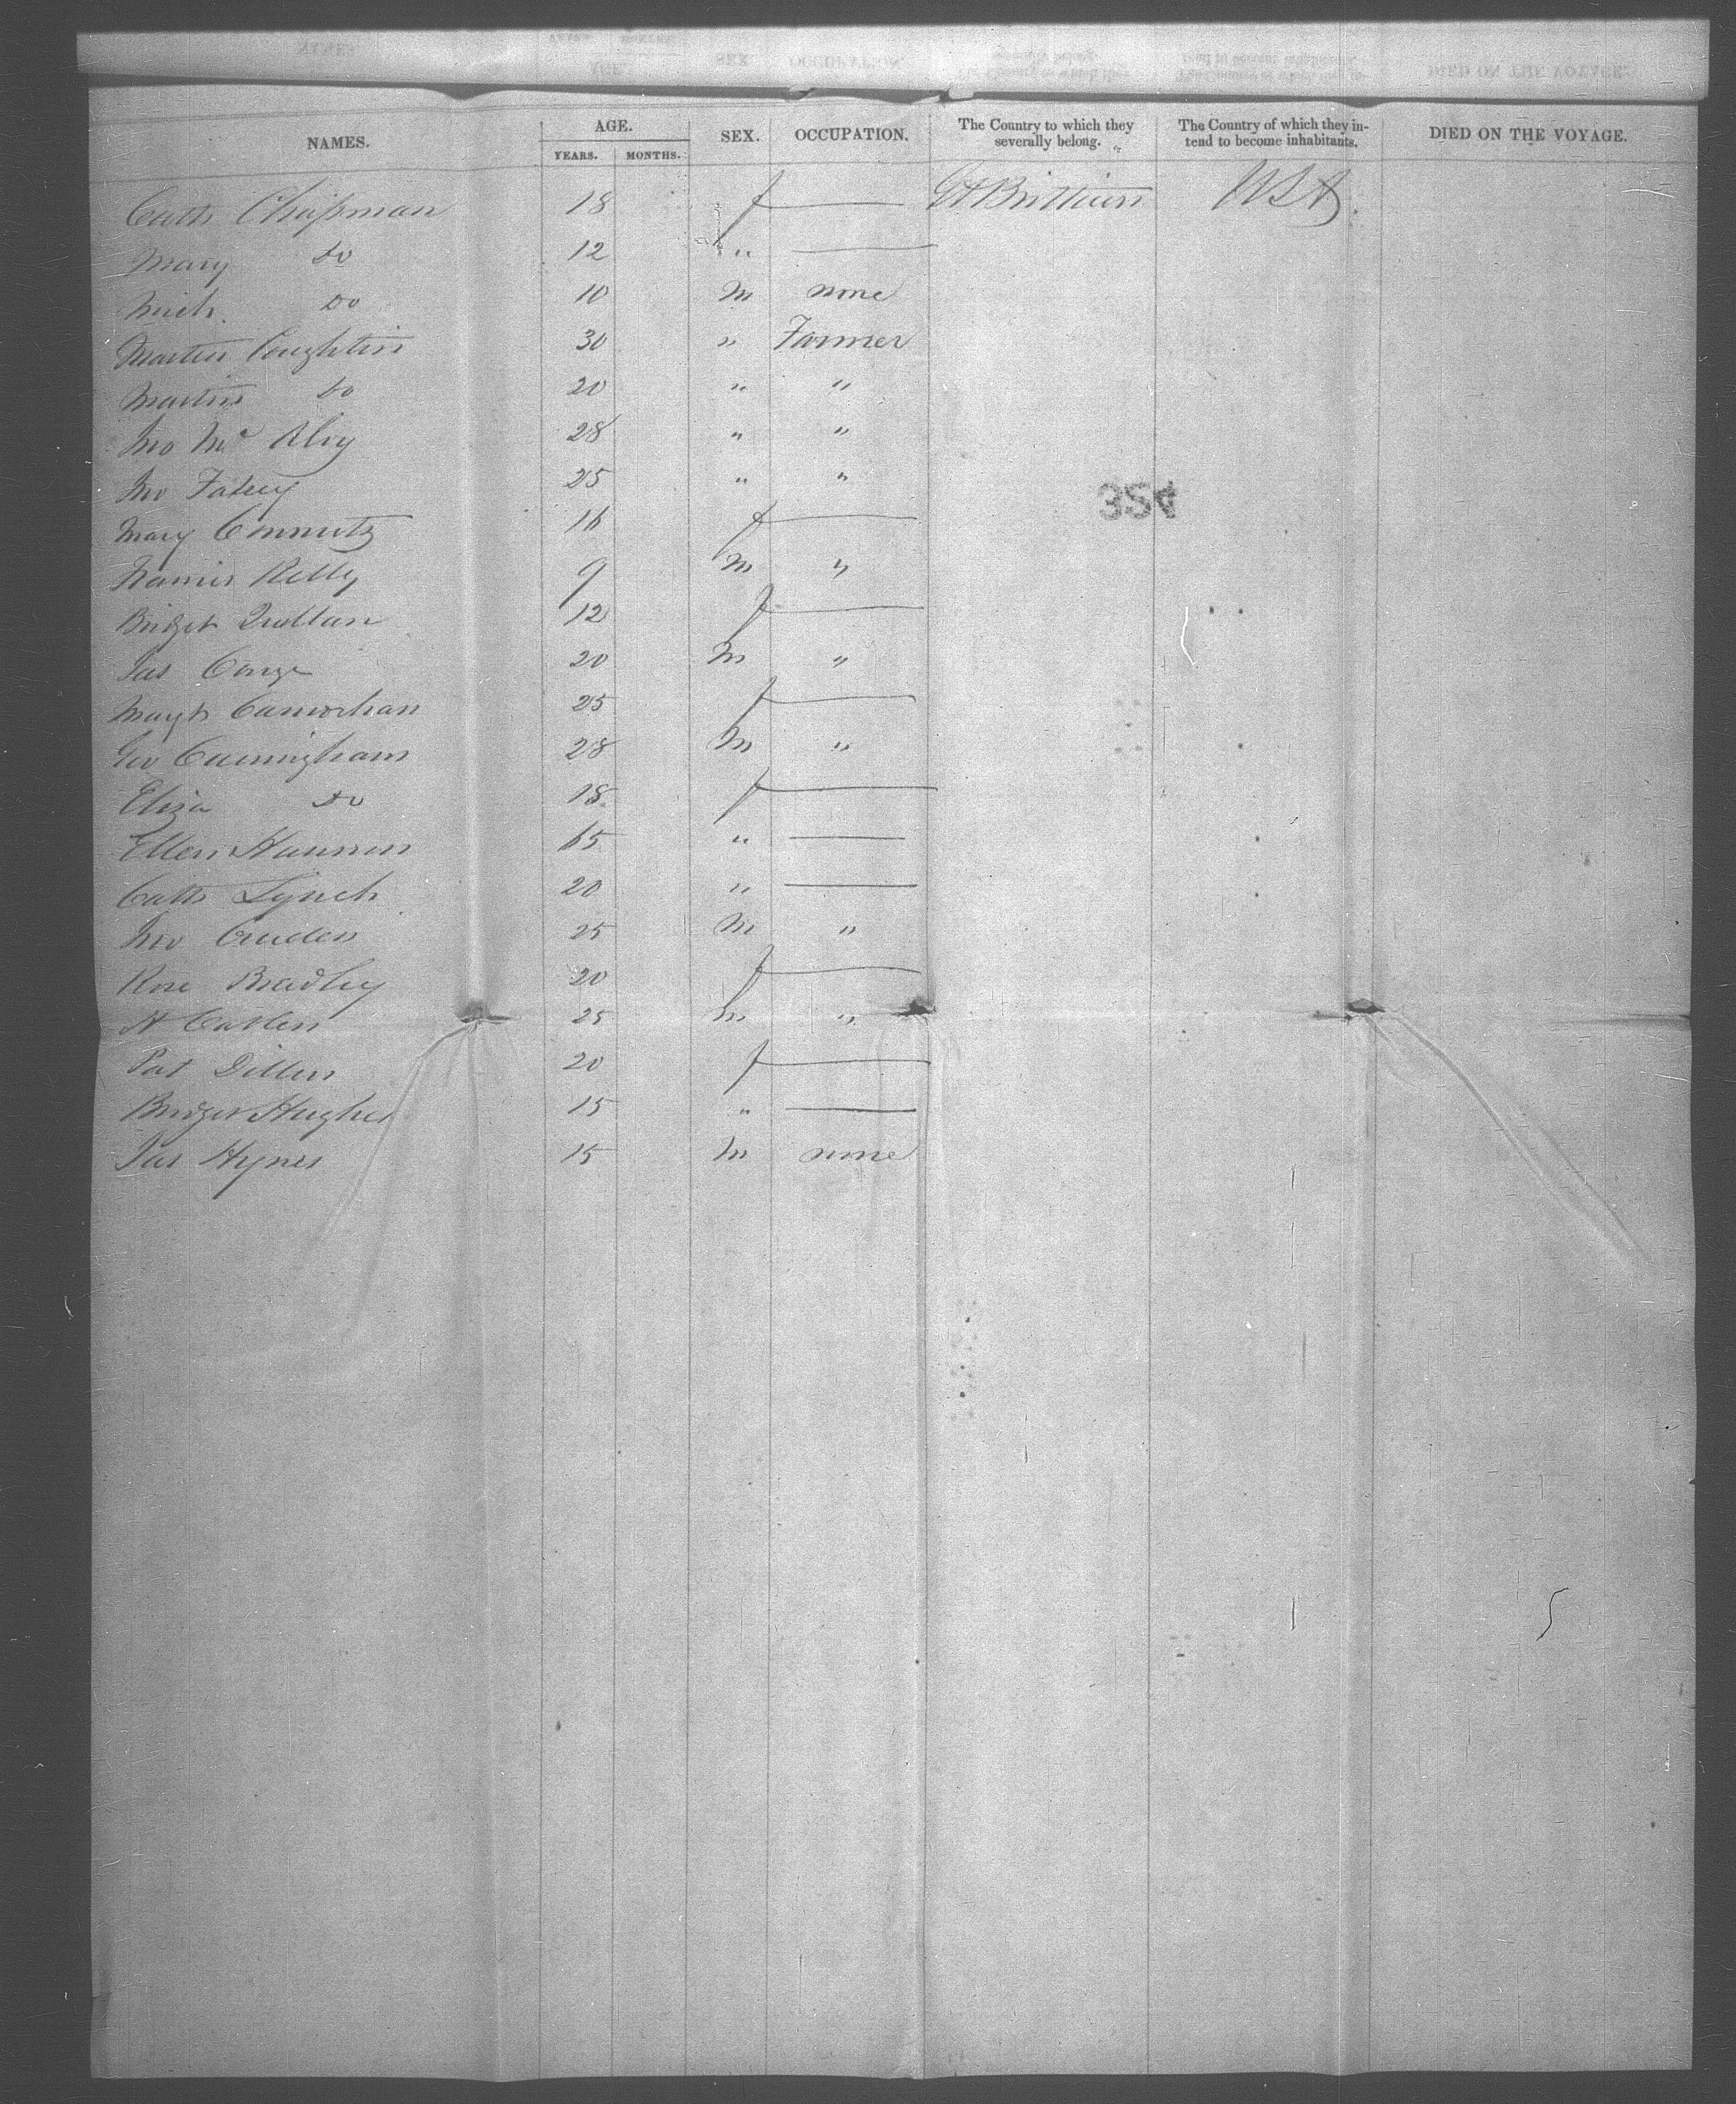 NAMES. AGE. YEARS. MONTHS. SEX. OCCUPATION. The Country to which they severally belong. The Country of which they intend to become inhabitants. DIED ON THE VOYAGE.
Cath Chapman 18 f — Gt Brittian USA.
Mary Do 12 " —
Mich. Do 10 M none
Martin Coughlin 30 " Farmer
Martin Do 20 " "
Jno Mc Alvy 28 " "
Jno Fahey 25 " "
354
Mary 16 f —
Francis Kelly 9 M "
Bridget Quillan 12 f —
Jas 20 M "
Magt 25 f —
Geo Cunningham 28 M "
Eliza Do 18 f —
Ellen Hannon 65 " —
Cath Lynch 20 " —
Jno 25 M "
Rose Bradley 20 f —
25 M "
Pat Dillen 20 f —
Bridget Hughes 15 " —
Jas Hynes 15 M none